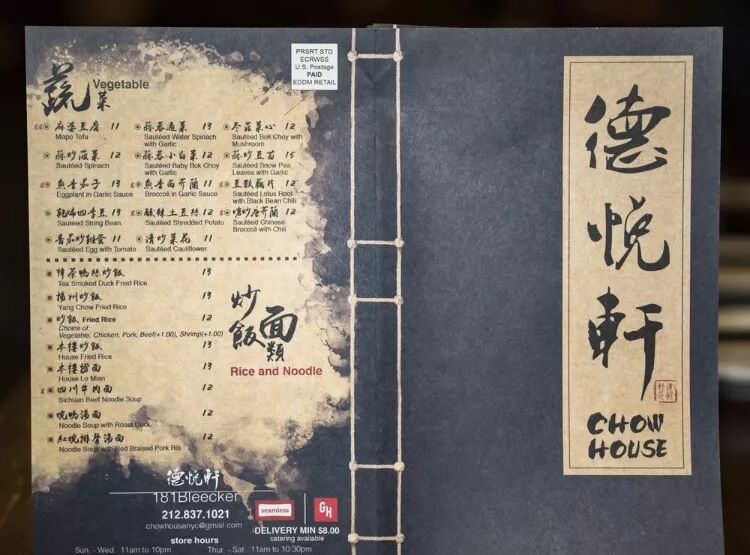 蔬菜
Vegetable
PRSRT STD
ECRWSS
U.S. Postage
PAID
EDDM RETAIL
麻婆豆腐 11
Mapo Tofu
蒜蓉通菜 13
Sautéed Water Spinach
with Garlic
冬菇菜心 12
Sautéed Bok Choy with
Mushroom
蒜炒菠菜 12
Sautéed Spinach
蒜蓉小白菜 12
Sautéed Baby Bok Choy
with Garlic
蒜炒豆苗 15
Sautéed Snow Pea
Leaves with Garlic
魚香茄子 13
Eggplant in Garlic Sauce
魚香西芥蘭 11
Broccoli in Garlic Sauce
豆豉藕片 12
Sautéed Lotus Root
with Black Bean Chili
乾煸四季豆 13
Sautéed String Bean
酸辣土豆絲 12
Sautéed Shredded Potato
嗆炒唐芥蘭 12
Sautéed Chinese
Broccoli with Chili
番茄炒雞蛋 11
Sautéed Egg with Tomato
清炒菜花 11
Sautéed Cauliflower
樟茶鴨絲炒飯 13
Tea Smoked Duck Fried Rice
揚州炒飯 13
Yang Chow Fried Rice
炒飯 Fried Rice 12
Choice of:
Vegetable, Chicken, Pork, Beef(+1.00), Shrimp(+1.00)
本樓炒飯 13
House Fried Rice
本樓撈面 13
House Lo Mian
四川牛肉面 12
Sichuan Beef Noodle Soup
燒鴨湯面 12
Noodle Soup with Roast Duck
紅燒排骨湯面 12
Noodle Soup with Red Braised Pork Rib
炒飯
面類
Rice and Noodle
德悦軒
181Bleecker
212.837.1021
chowhousenyc@gmail.com
store hours
Sun. - Wed. 11am to 10pm
Thur. - Sat. 11am to 10:30pm
seamless
GH
DELIVERY MIN $8.00
catering available
德悦軒
CHOW
HOUSE